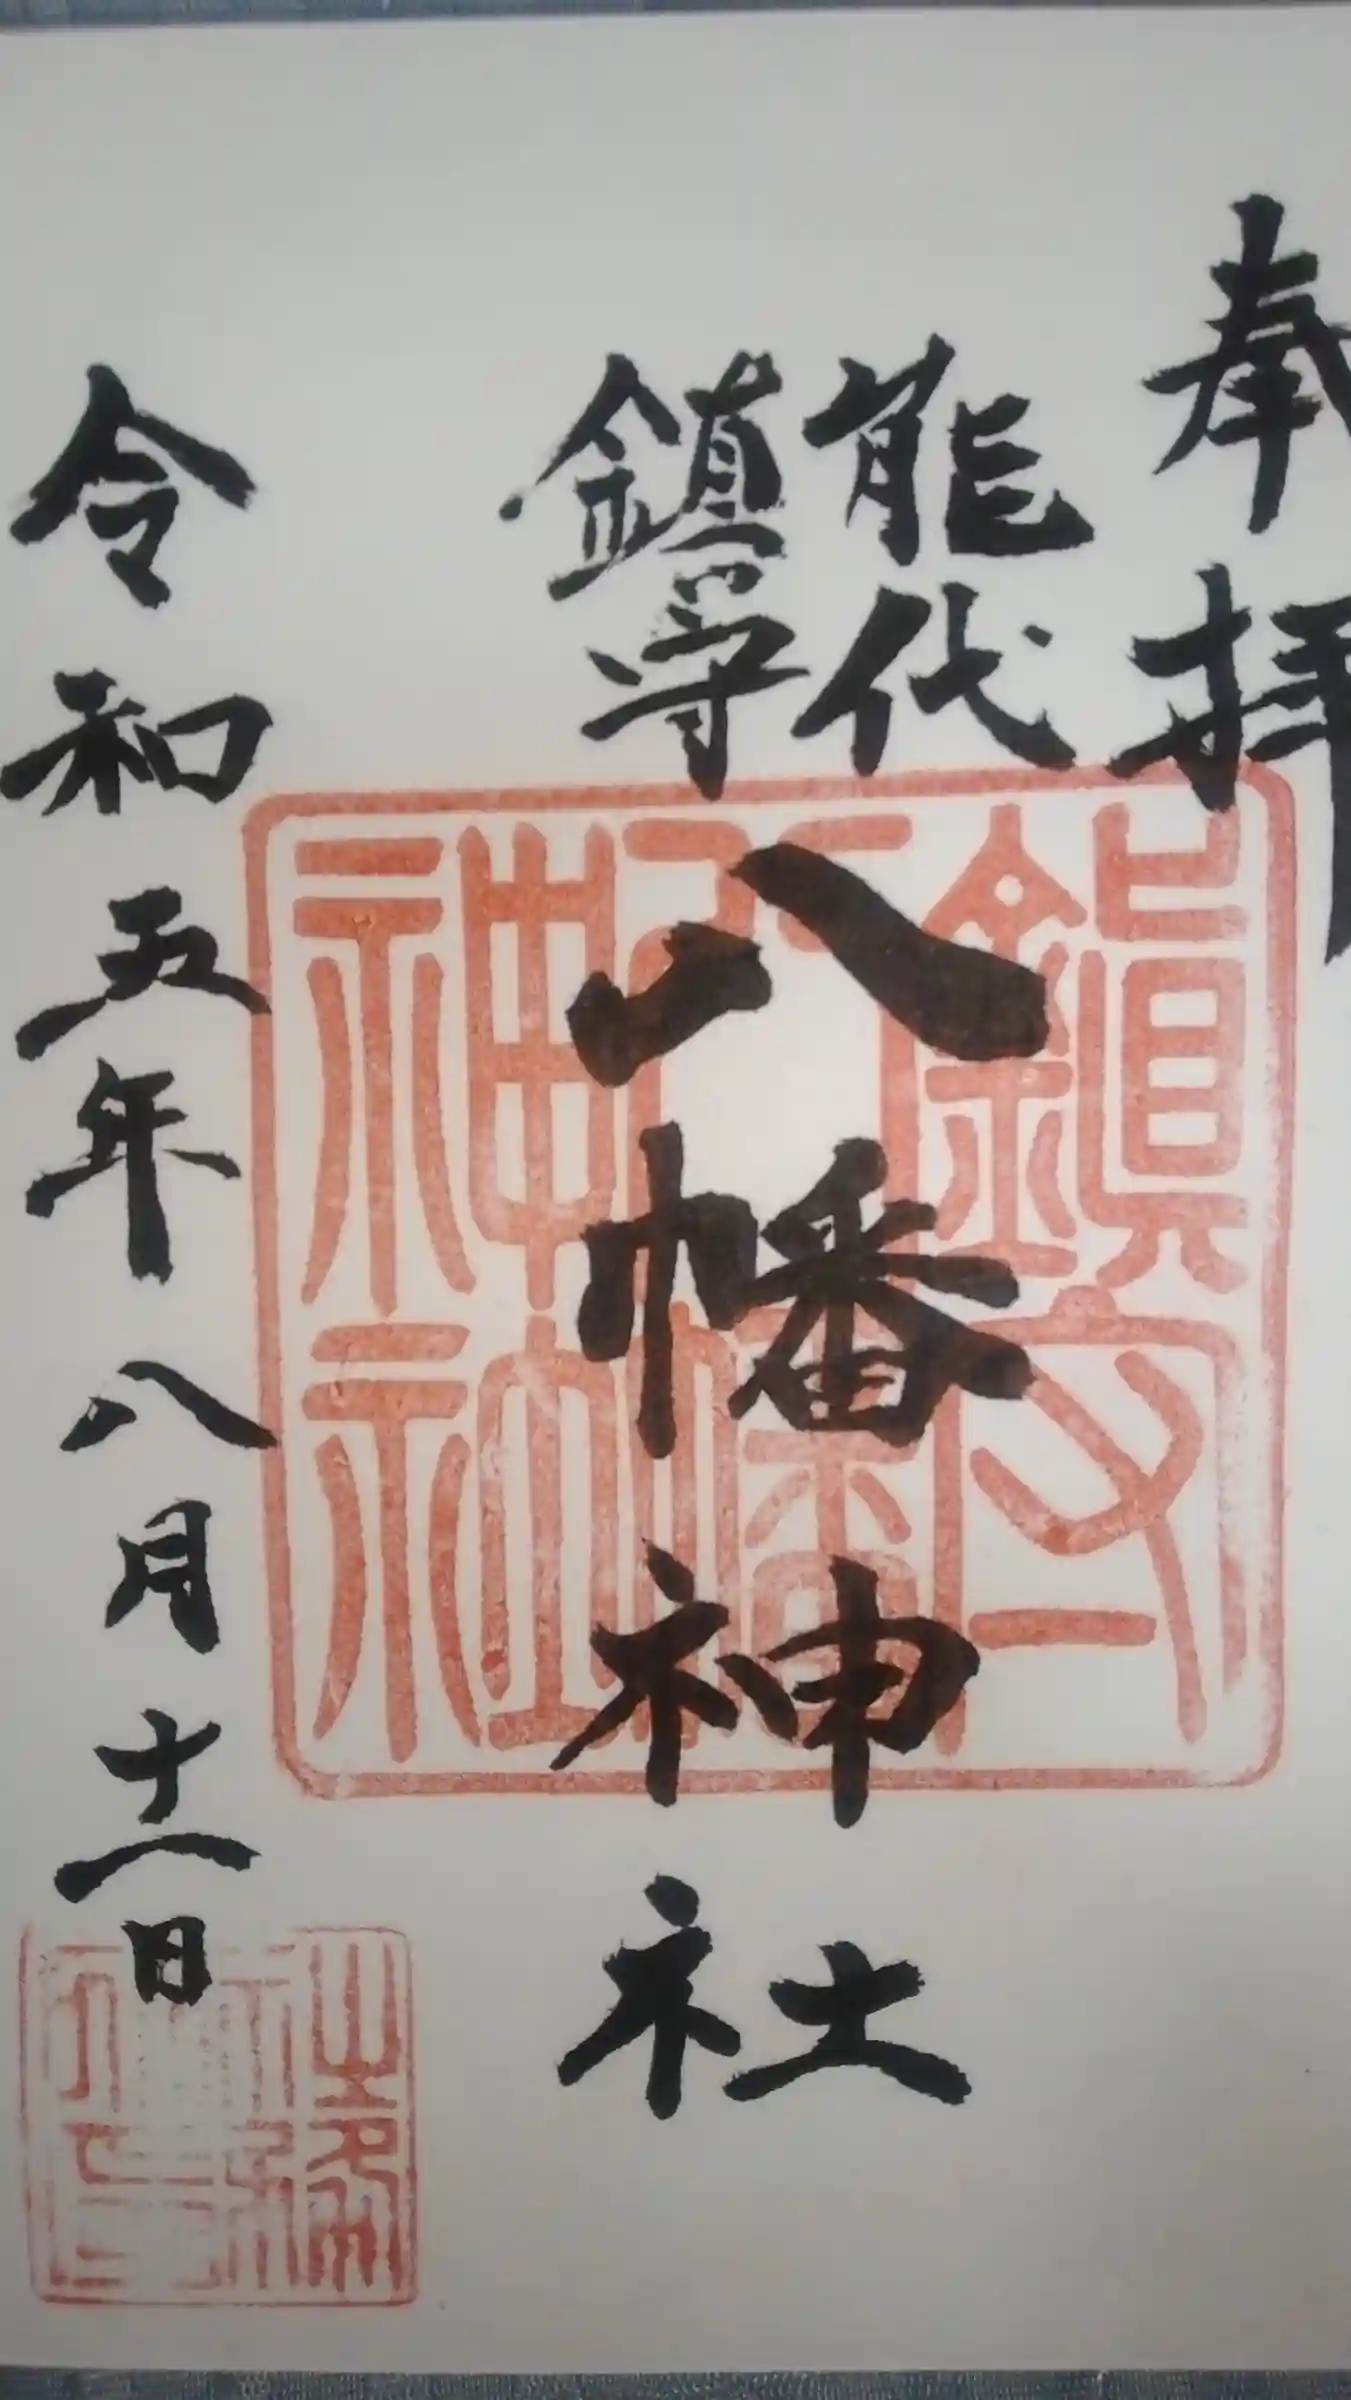 奉拝
能代
鎮守
八幡神社
令和五年八月十二日
鎮守
八幡
神社